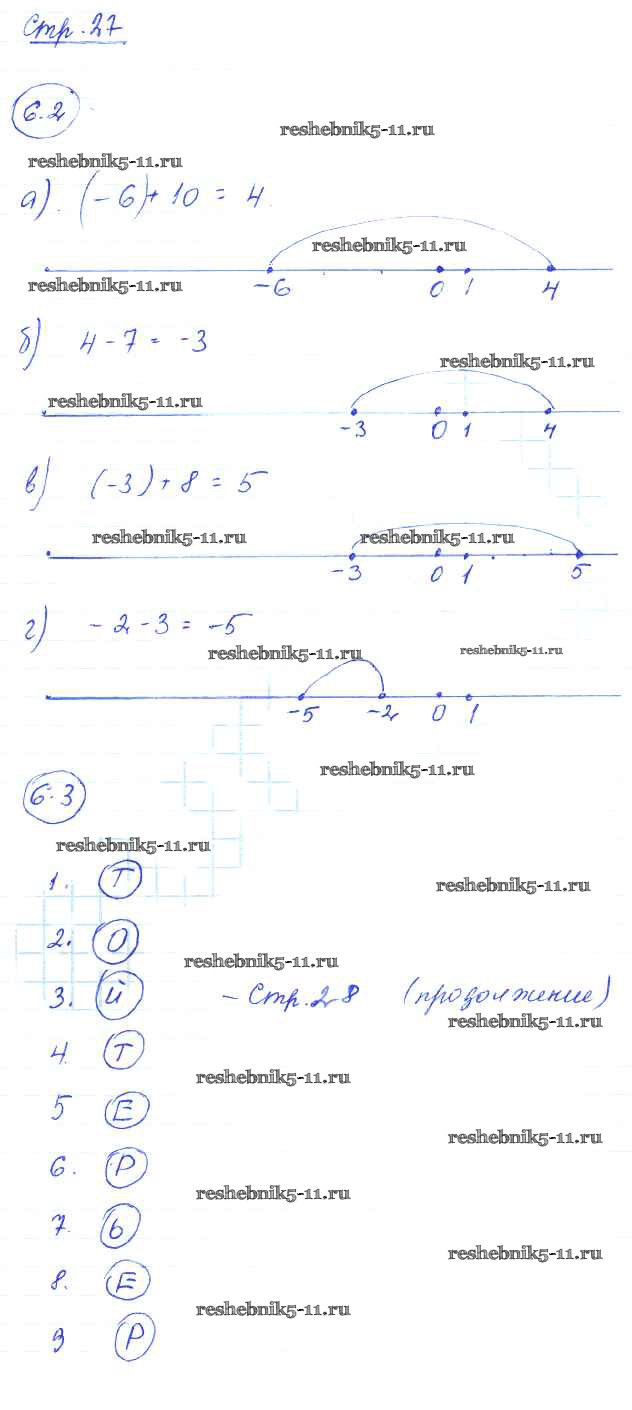 Стр. 27
6.2
reshebnik5-11.ru
reshebnik5-11.ru
а). (-6)+10 = 4.
reshebnik5-11.ru
reshebnik5-11.ru
-6 0 1 4
б) 4-7 = -3
reshebnik5-11.ru
reshebnik5-11.ru
-3 0 1 4
в) (-3)+8 = 5
reshebnik5-11.ru reshebnik5-11.ru
-3 0 1 5
г) -2-3 = -5
reshebnik5-11.ru reshebnik5-11.ru
-5 -2 0 1
reshebnik5-11.ru
6.3
reshebnik5-11.ru
1. Т
reshebnik5-11.ru
2. О
reshebnik5-11.ru
3. Й - Стр. 28 (продолжение)
reshebnik5-11.ru
4. Т
reshebnik5-11.ru
5 Е
reshebnik5-11.ru
6. Р
reshebnik5-11.ru
7. Ь
reshebnik5-11.ru
8. Е
reshebnik5-11.ru
9 Р